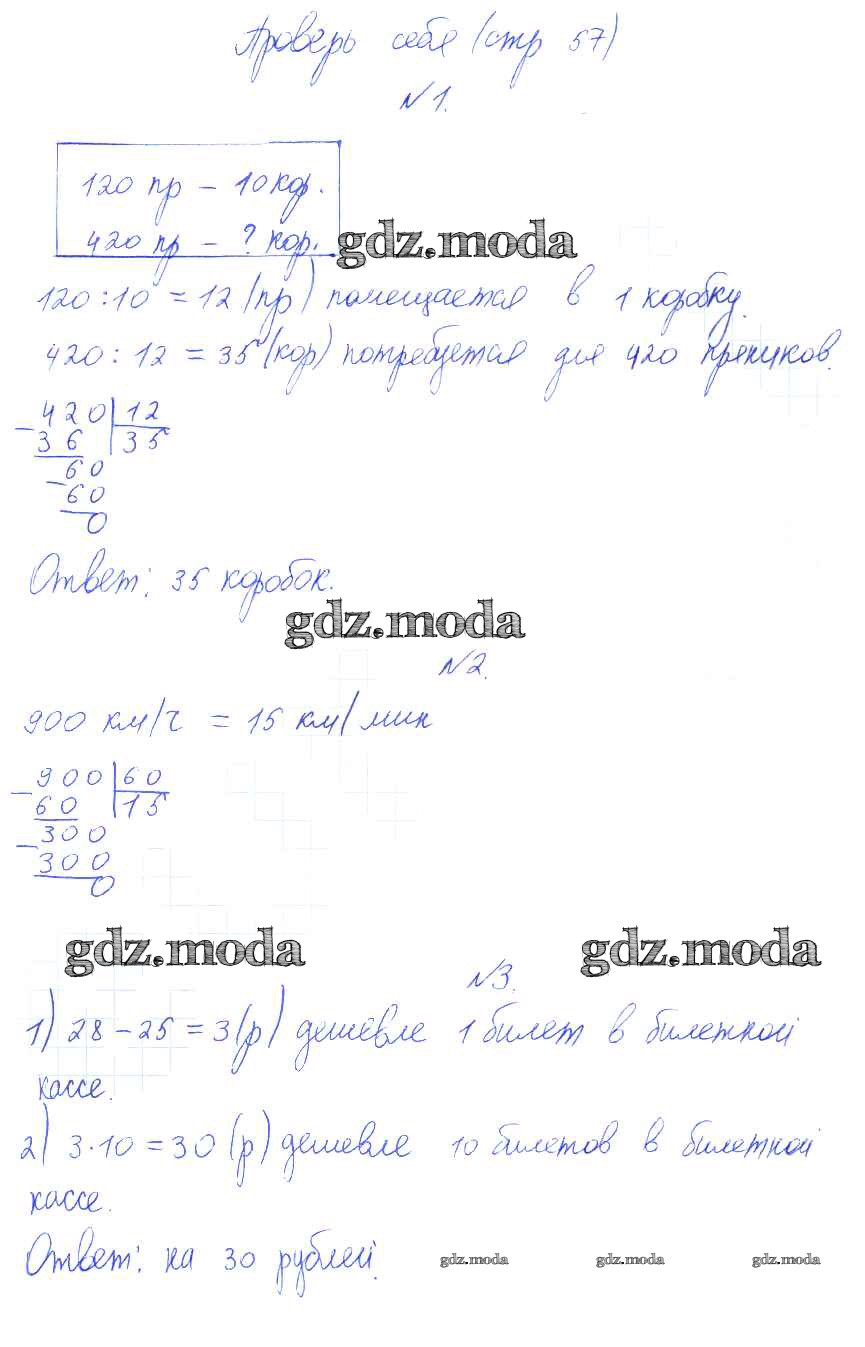 Проверь себя (стр 57)
№1.
120 пр – 10 кор.
420 пр – ? кор.
gdz.moda
120 : 10 = 12 (пр) помещается в 1 коробку.
420 : 12 = 35 (кор) потребуется для 420 пряников.
420 | 12
– 36 | 35
60
– 60
0
Ответ: 35 коробок.
gdz.moda
№2.
900 км/ч = 15 км/мин
900 | 60
– 60 | 15
300
– 300
0
gdz.moda gdz.moda
№3.
1) 28 – 25 = 3 (р) дешевле 1 билет в билетной
кассе.
2) 3 · 10 = 30 (р) дешевле 10 билетов в билетной
кассе.
Ответ: на 30 рублей.
gdz.moda gdz.moda gdz.moda